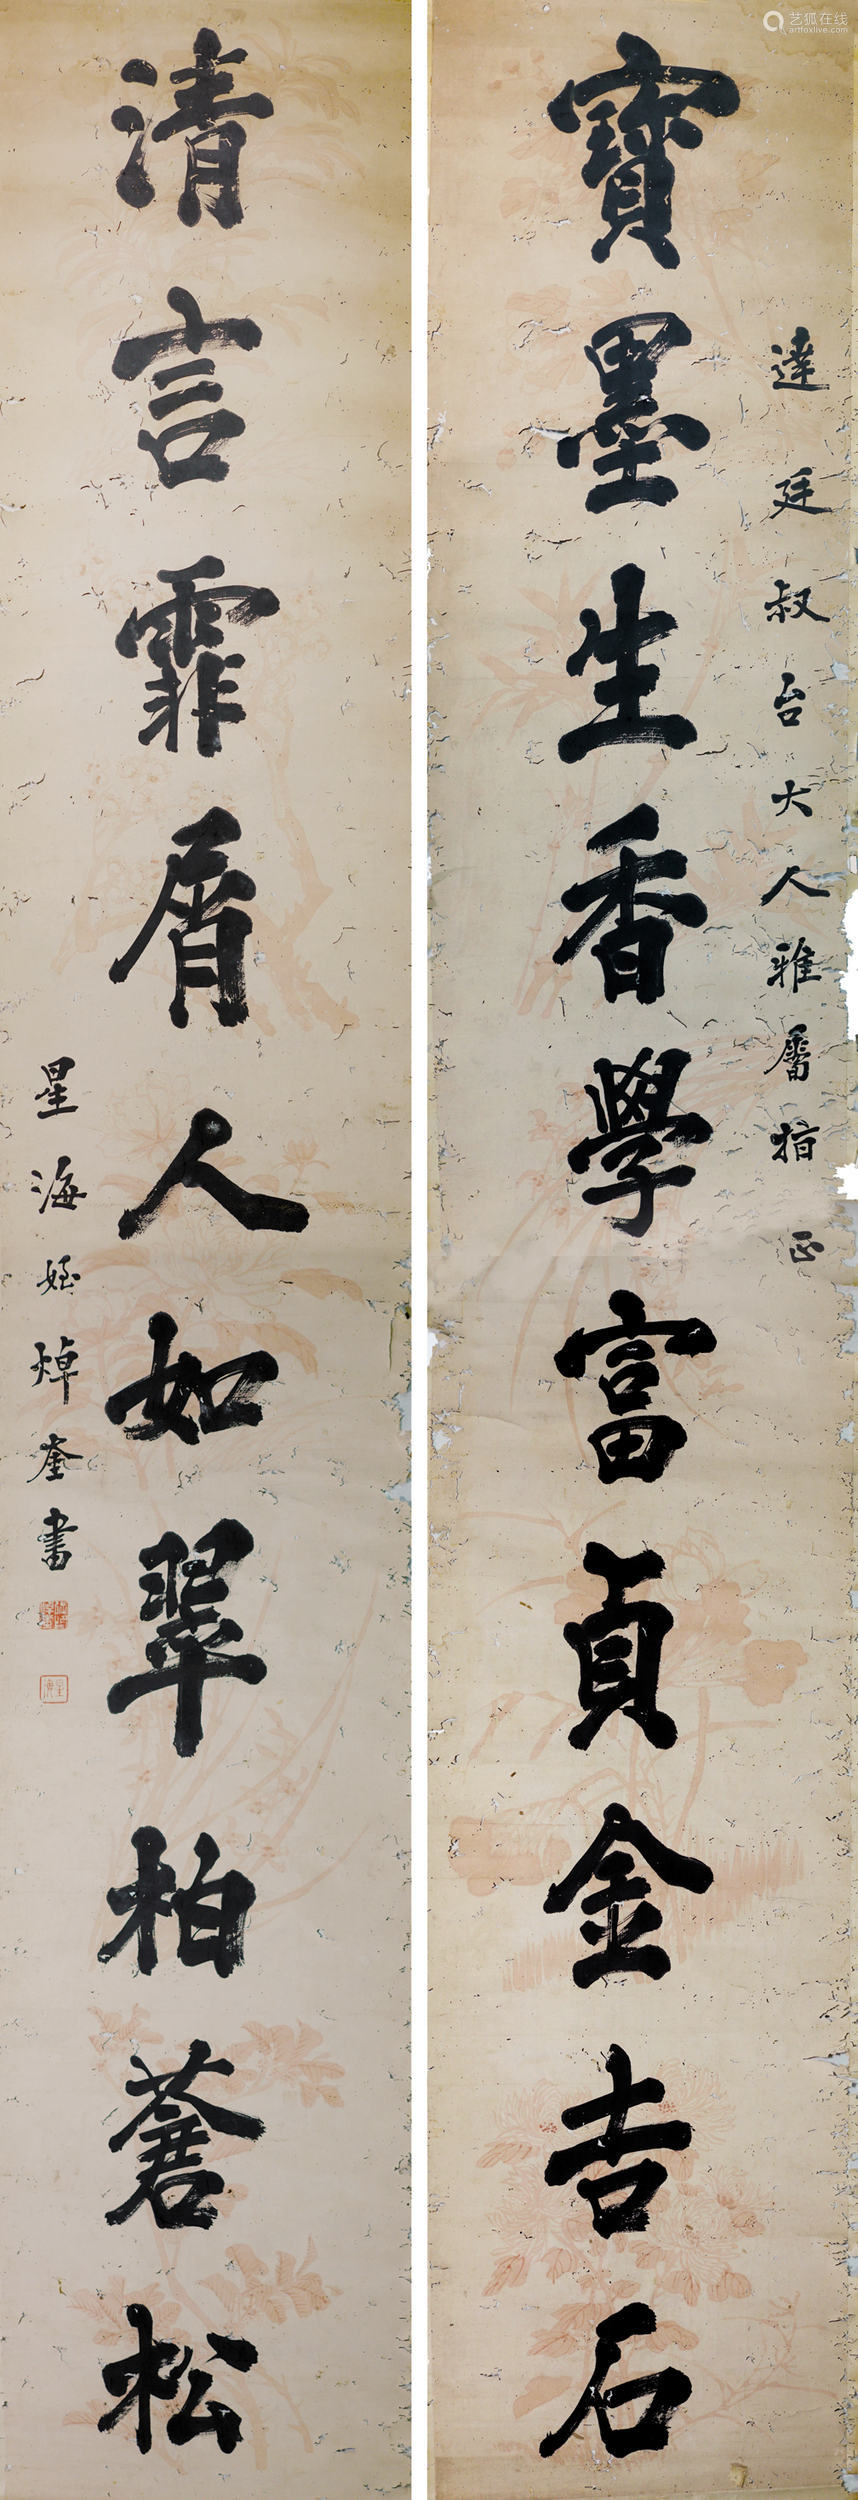 艺狐在线
artfoxlive.com
達廷叔台大人雅屬指正
寶墨生香學富貞金吉石
清言霏屑人如翠柏蒼松
星海姪焯奎書